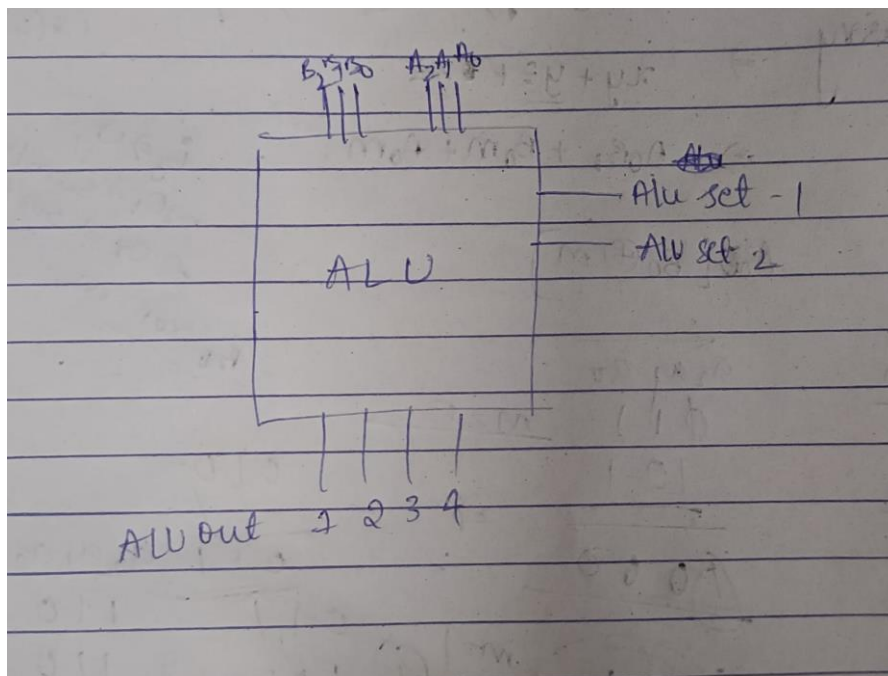 B2 B1 B0 A2 A1 A0
Alu set - 1
ALU set 2
ALU
ALU out 1 2 3 4